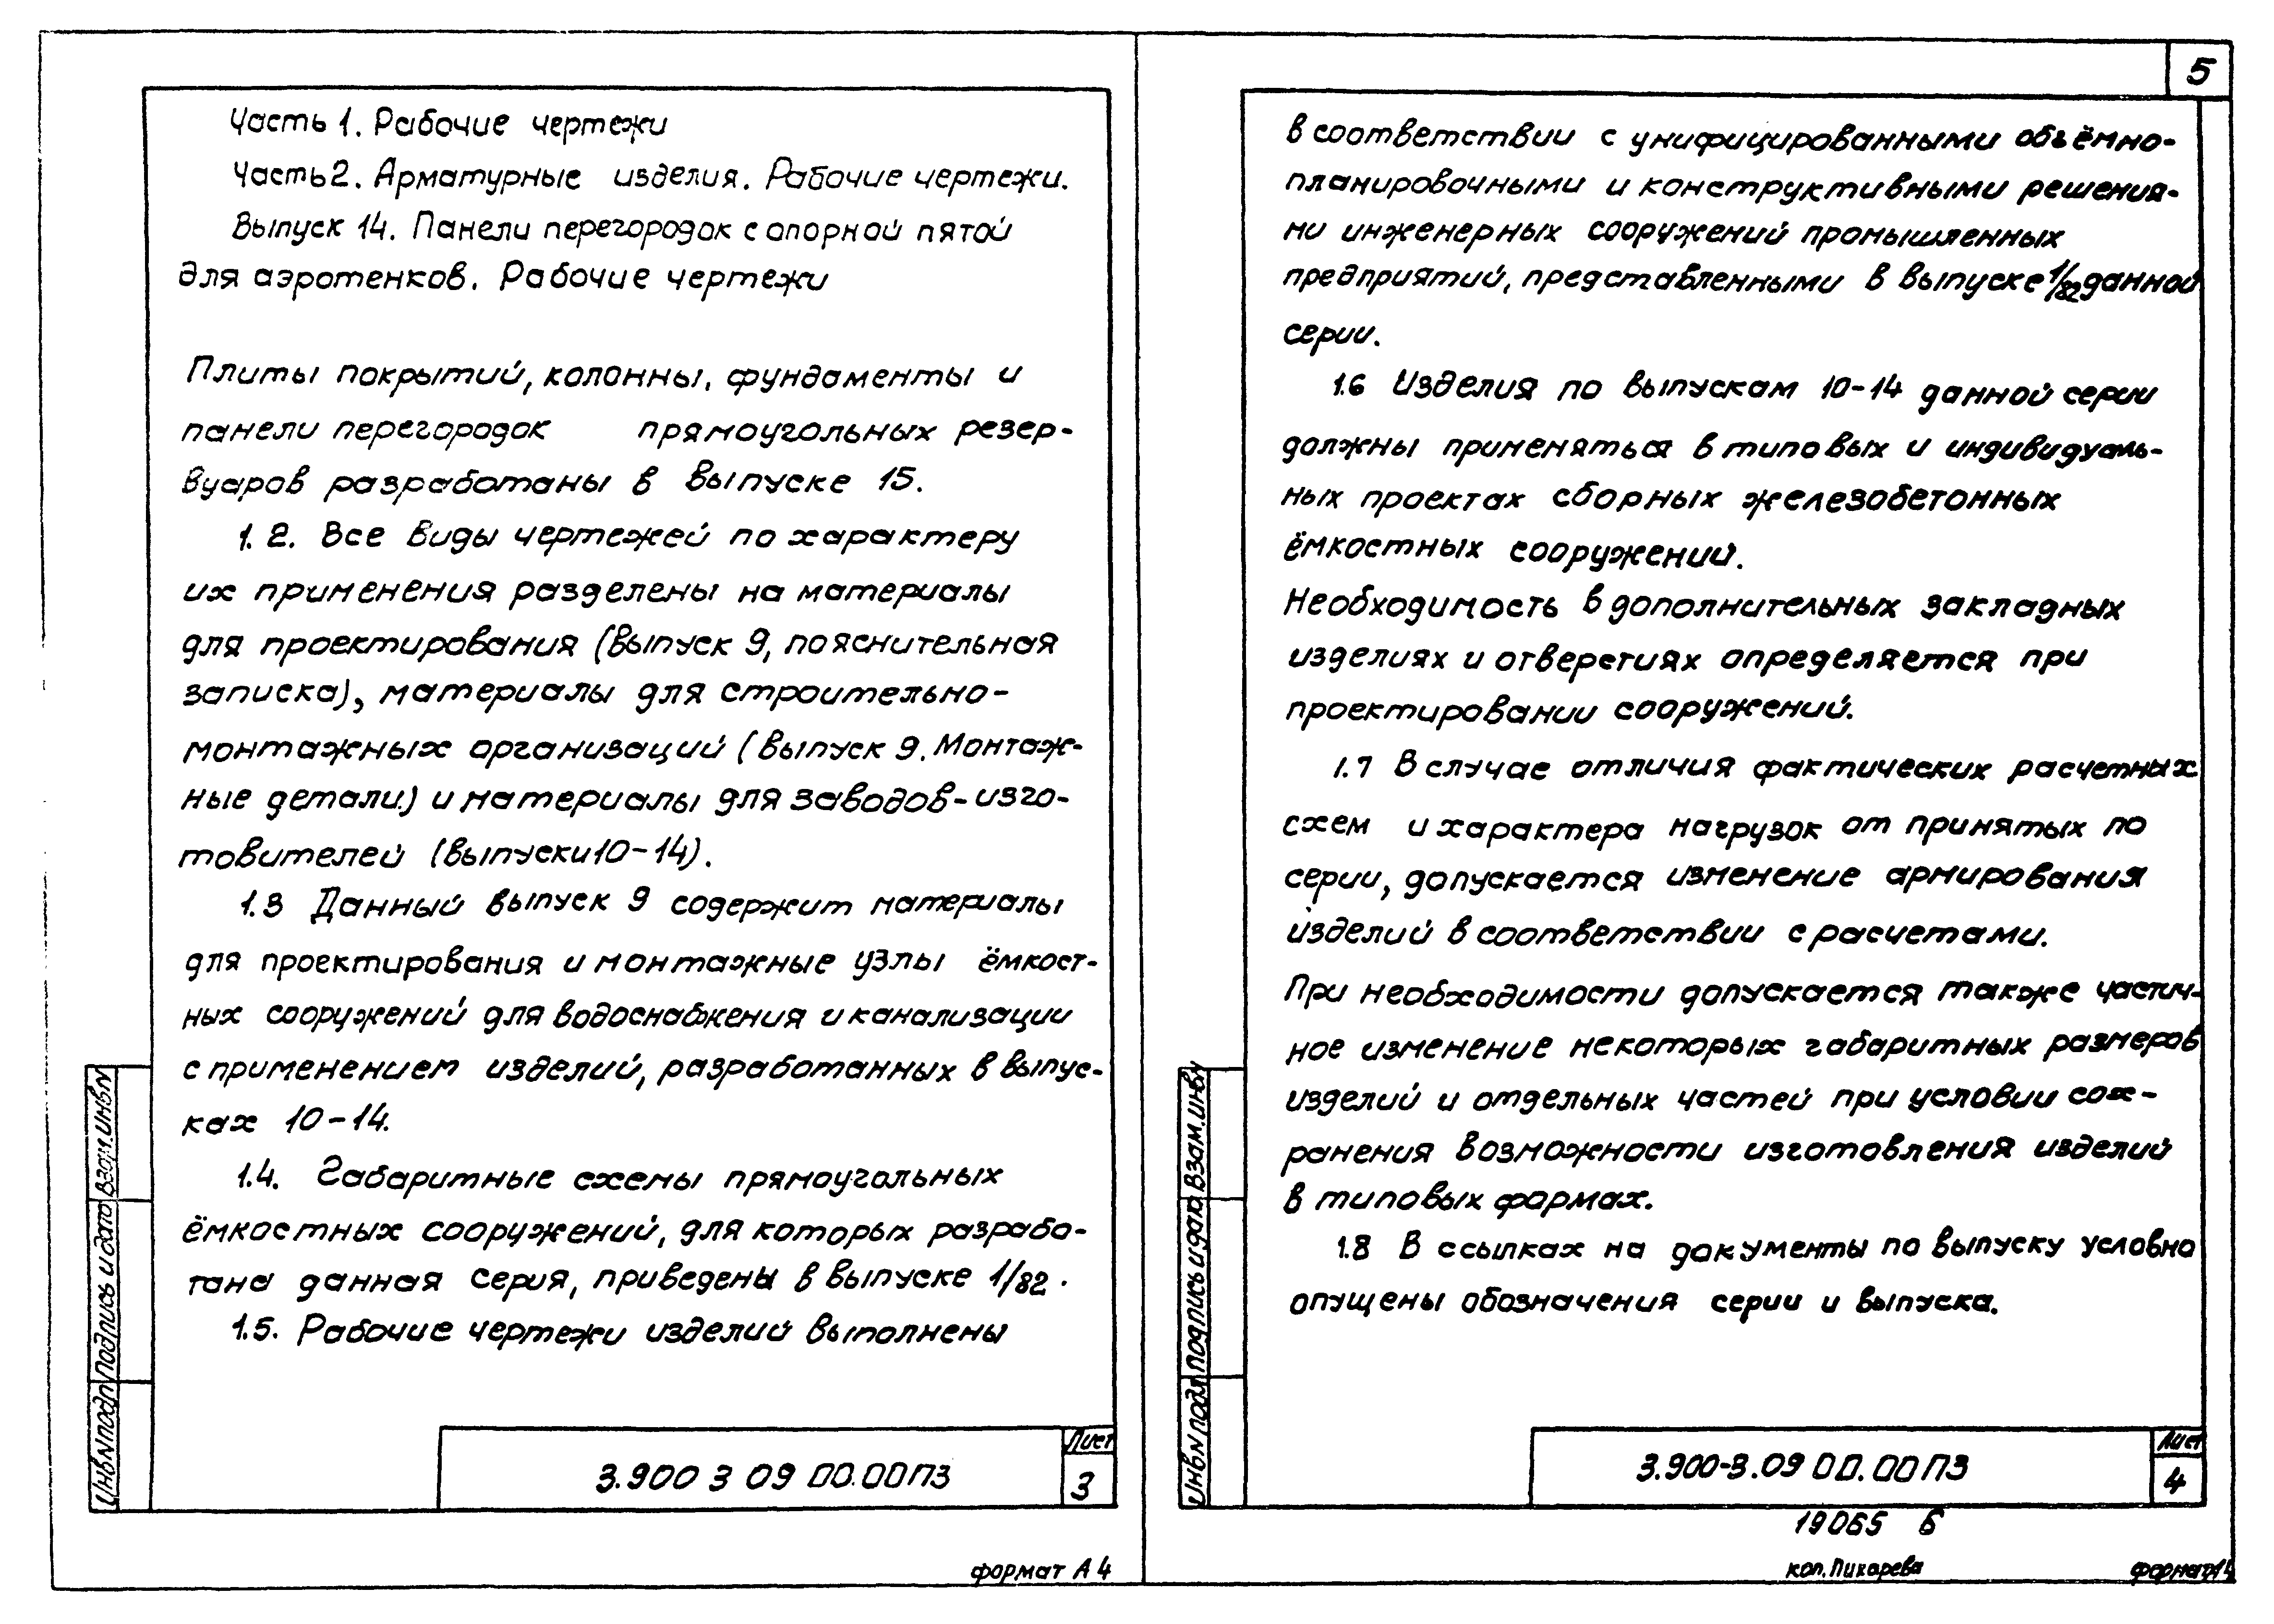 Часть 1. Рабочие чертежи
Часть 2. Арматурные изделия. Рабочие чертежи.
Выпуск 14. Панели перегородок с опорной пятой
для аэротенков. Рабочие чертежи
Плиты покрытий, колонны, фундаменты и
панели перегородок прямоугольных резер-
вуаров разработаны в выпуске 15.
1.2. Все виды чертежей по характеру
их применения разделены на материалы
для проектирования (выпуск 9, пояснительная
записка), материалы для строительно-
монтажных организаций (выпуск 9. Монтаж-
ные детали.) и материалы для заводов-изго-
товителей (выпуски 10-14).
1.3 Данный выпуск 9 содержит материалы
для проектирования и монтажные узлы ёмкост-
ных сооружений для водоснабжения и канализации
с применением изделий, разработанных в выпус-
ках 10-14.
1.4. Габаритные схемы прямоугольных
ёмкостных сооружений, для которых разрабо-
тана данная серия, приведены в выпуске 1/82.
1.5. Рабочие чертежи изделий выполнены
Инв.N подл Подпись и дата Взам.инв.N
3.900 3 09 00.00ПЗ
Лист
3
формат А4
5
в соответствии с унифицированными объёмно-
планировочными и конструктивными решения-
ми инженерных сооружений промышленных
предприятий, представленными в выпуске 1/82 данной
серии.
1.6 Изделия по выпускам 10-14 данной серии
должны применяться в типовых и индивидуаль-
ных проектах сборных железобетонных
ёмкостных сооружений.
Необходимость в дополнительных закладных
изделиях и отверстиях определяется при
проектировании сооружений.
1.7 В случае отличия фактических расчетных
схем и характера нагрузок от принятых по
серии, допускается изменение армирования
изделий в соответствии с расчетами.
При необходимости допускается также частич-
ное изменение некоторых габаритных размеров
изделий и отдельных частей при условии сох-
ранения возможности изготовления изделий
в типовых формах.
1.8 В ссылках на документы по выпуску условно
опущены обозначения серии и выпуска.
Инв.N подл Подпись и дата Взам.инв.N
3.900-3.09 00.00ПЗ
Лист
4
19065 6
коп. Пихарева
формат А4